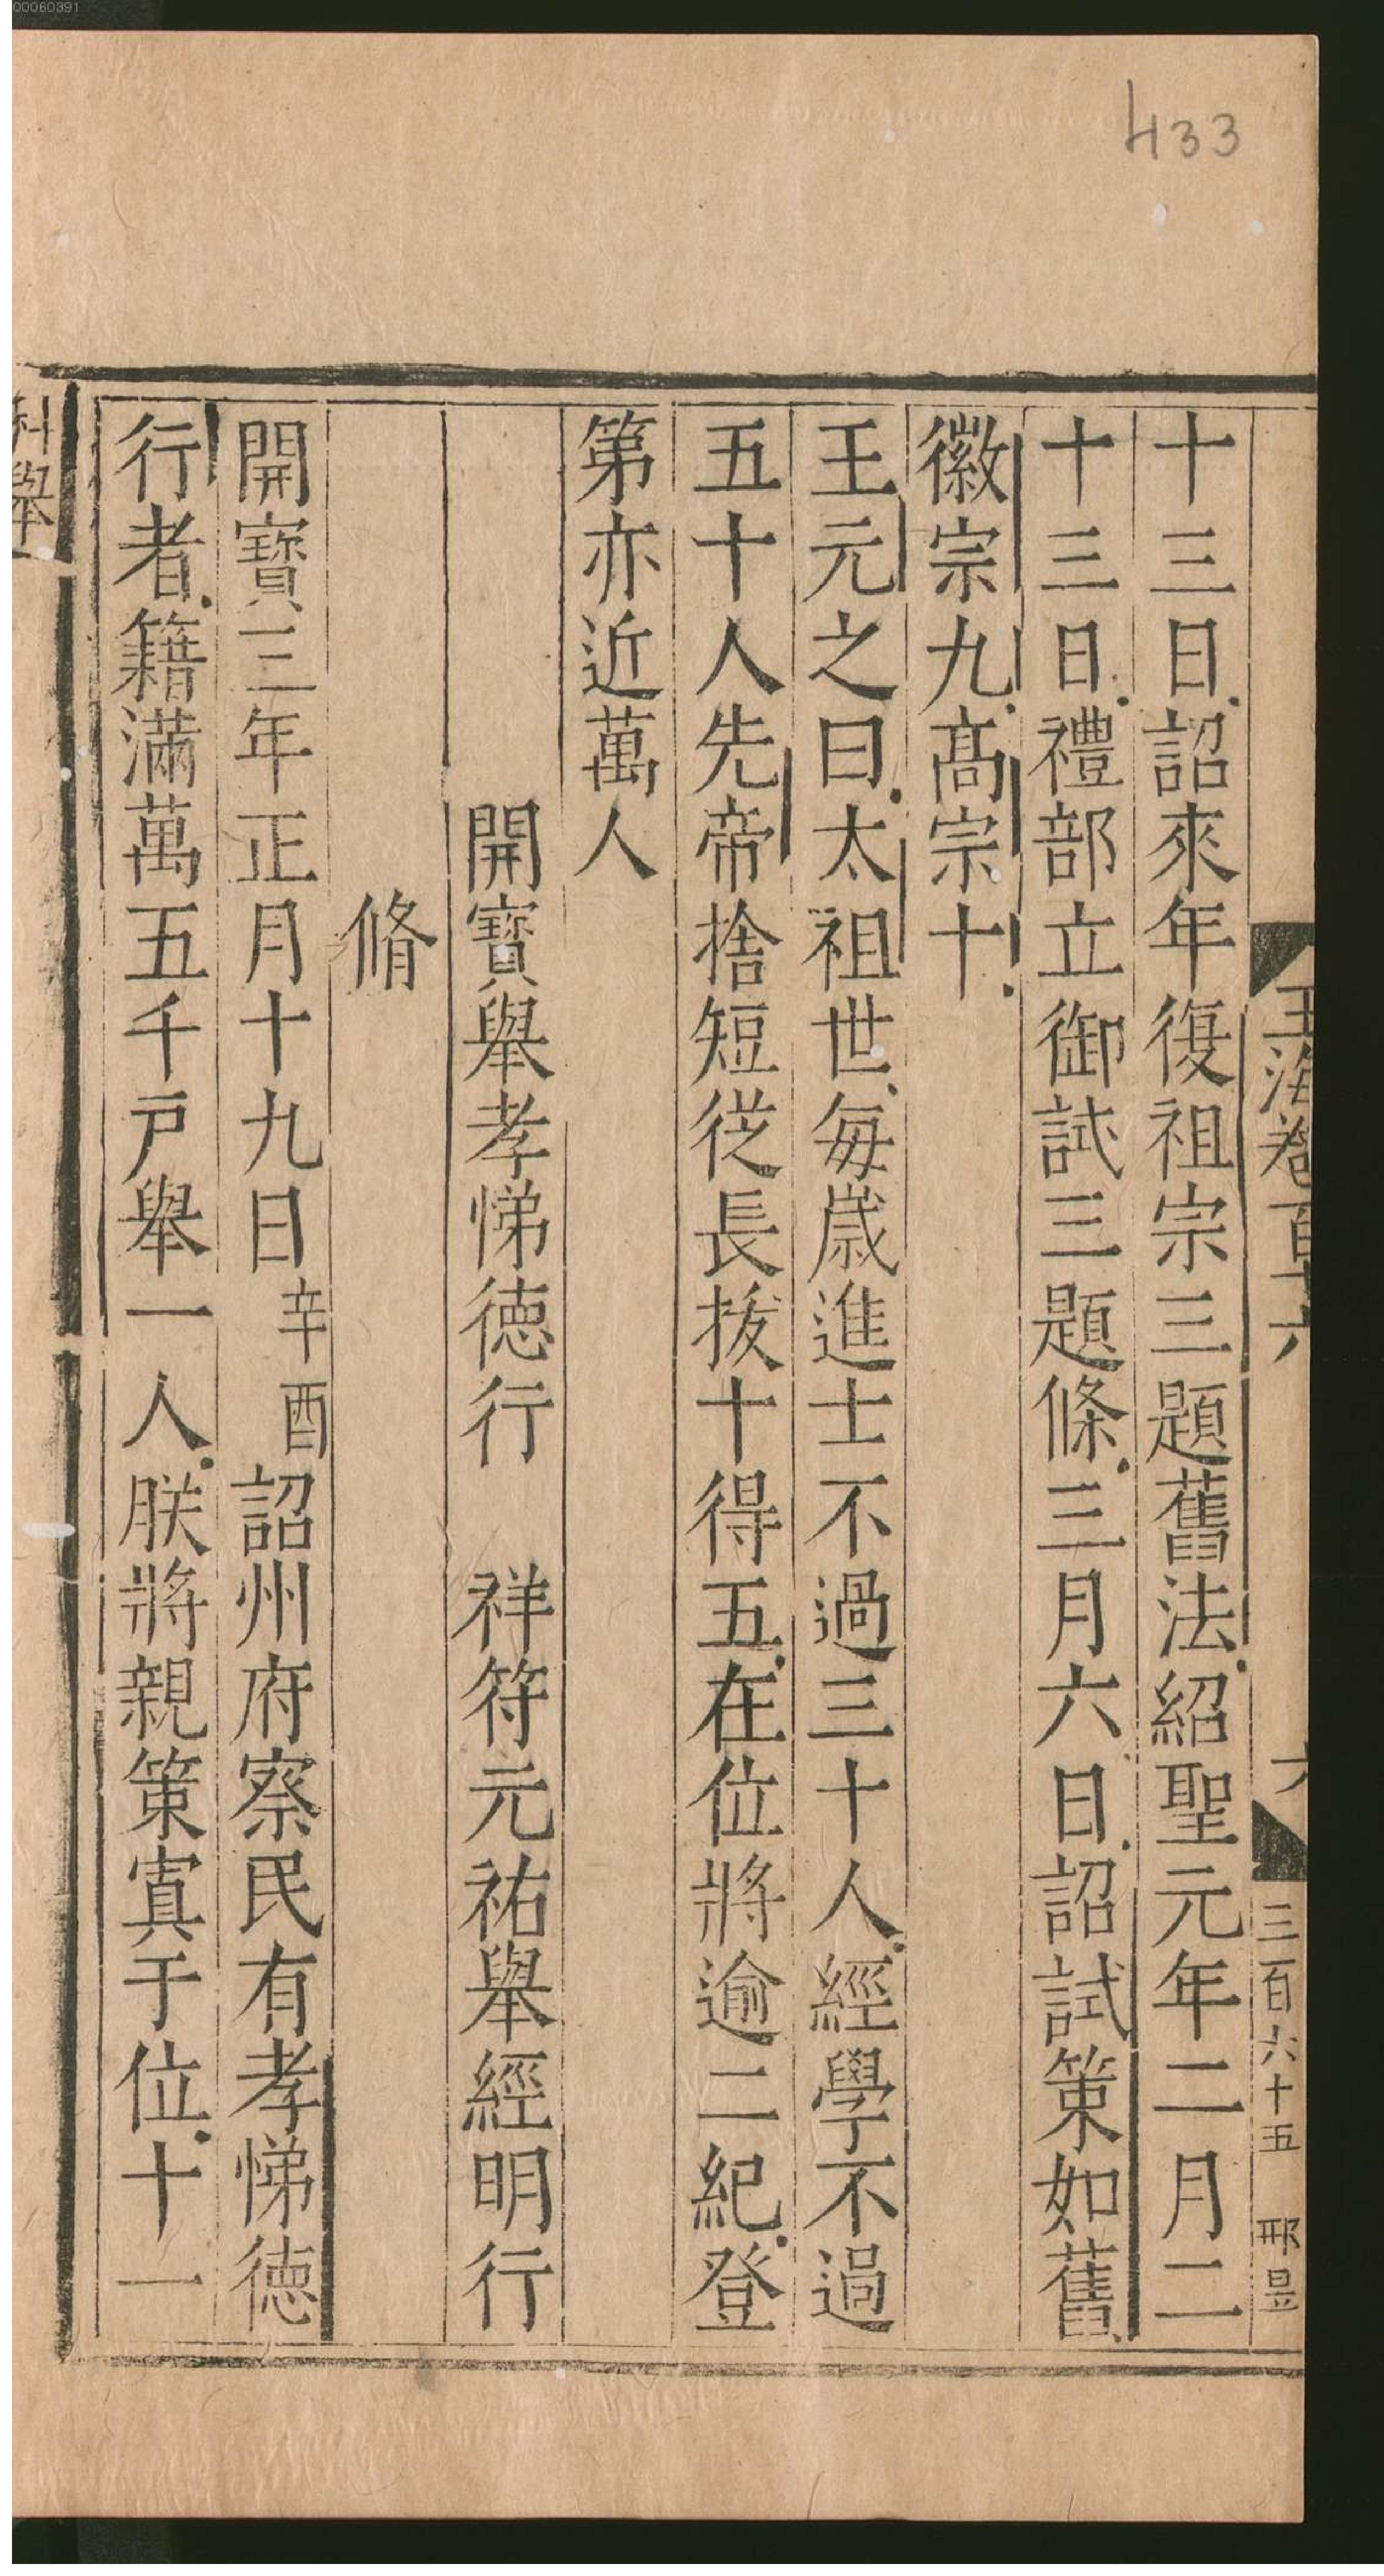 00060391
433
玉海卷百十六
六
三百六十五
邢昱
十三日詔來年復祖宗三題舊法紹聖元年二月二
十三日禮部立御試三題條三月六日詔試策如舊
徽宗九髙宗十
王元之曰太祖世每嵗進士不過三十人經學不過
五十人先帝捨短從長拔十得五在位將逾二紀登
第亦近萬人
開寶舉孝悌德行 祥符元祐舉經明行
脩
開寶三年正月十九日辛酉詔州府察民有孝悌德
行者籍滿萬五千戸舉一人朕將親策寘于位十一
科舉